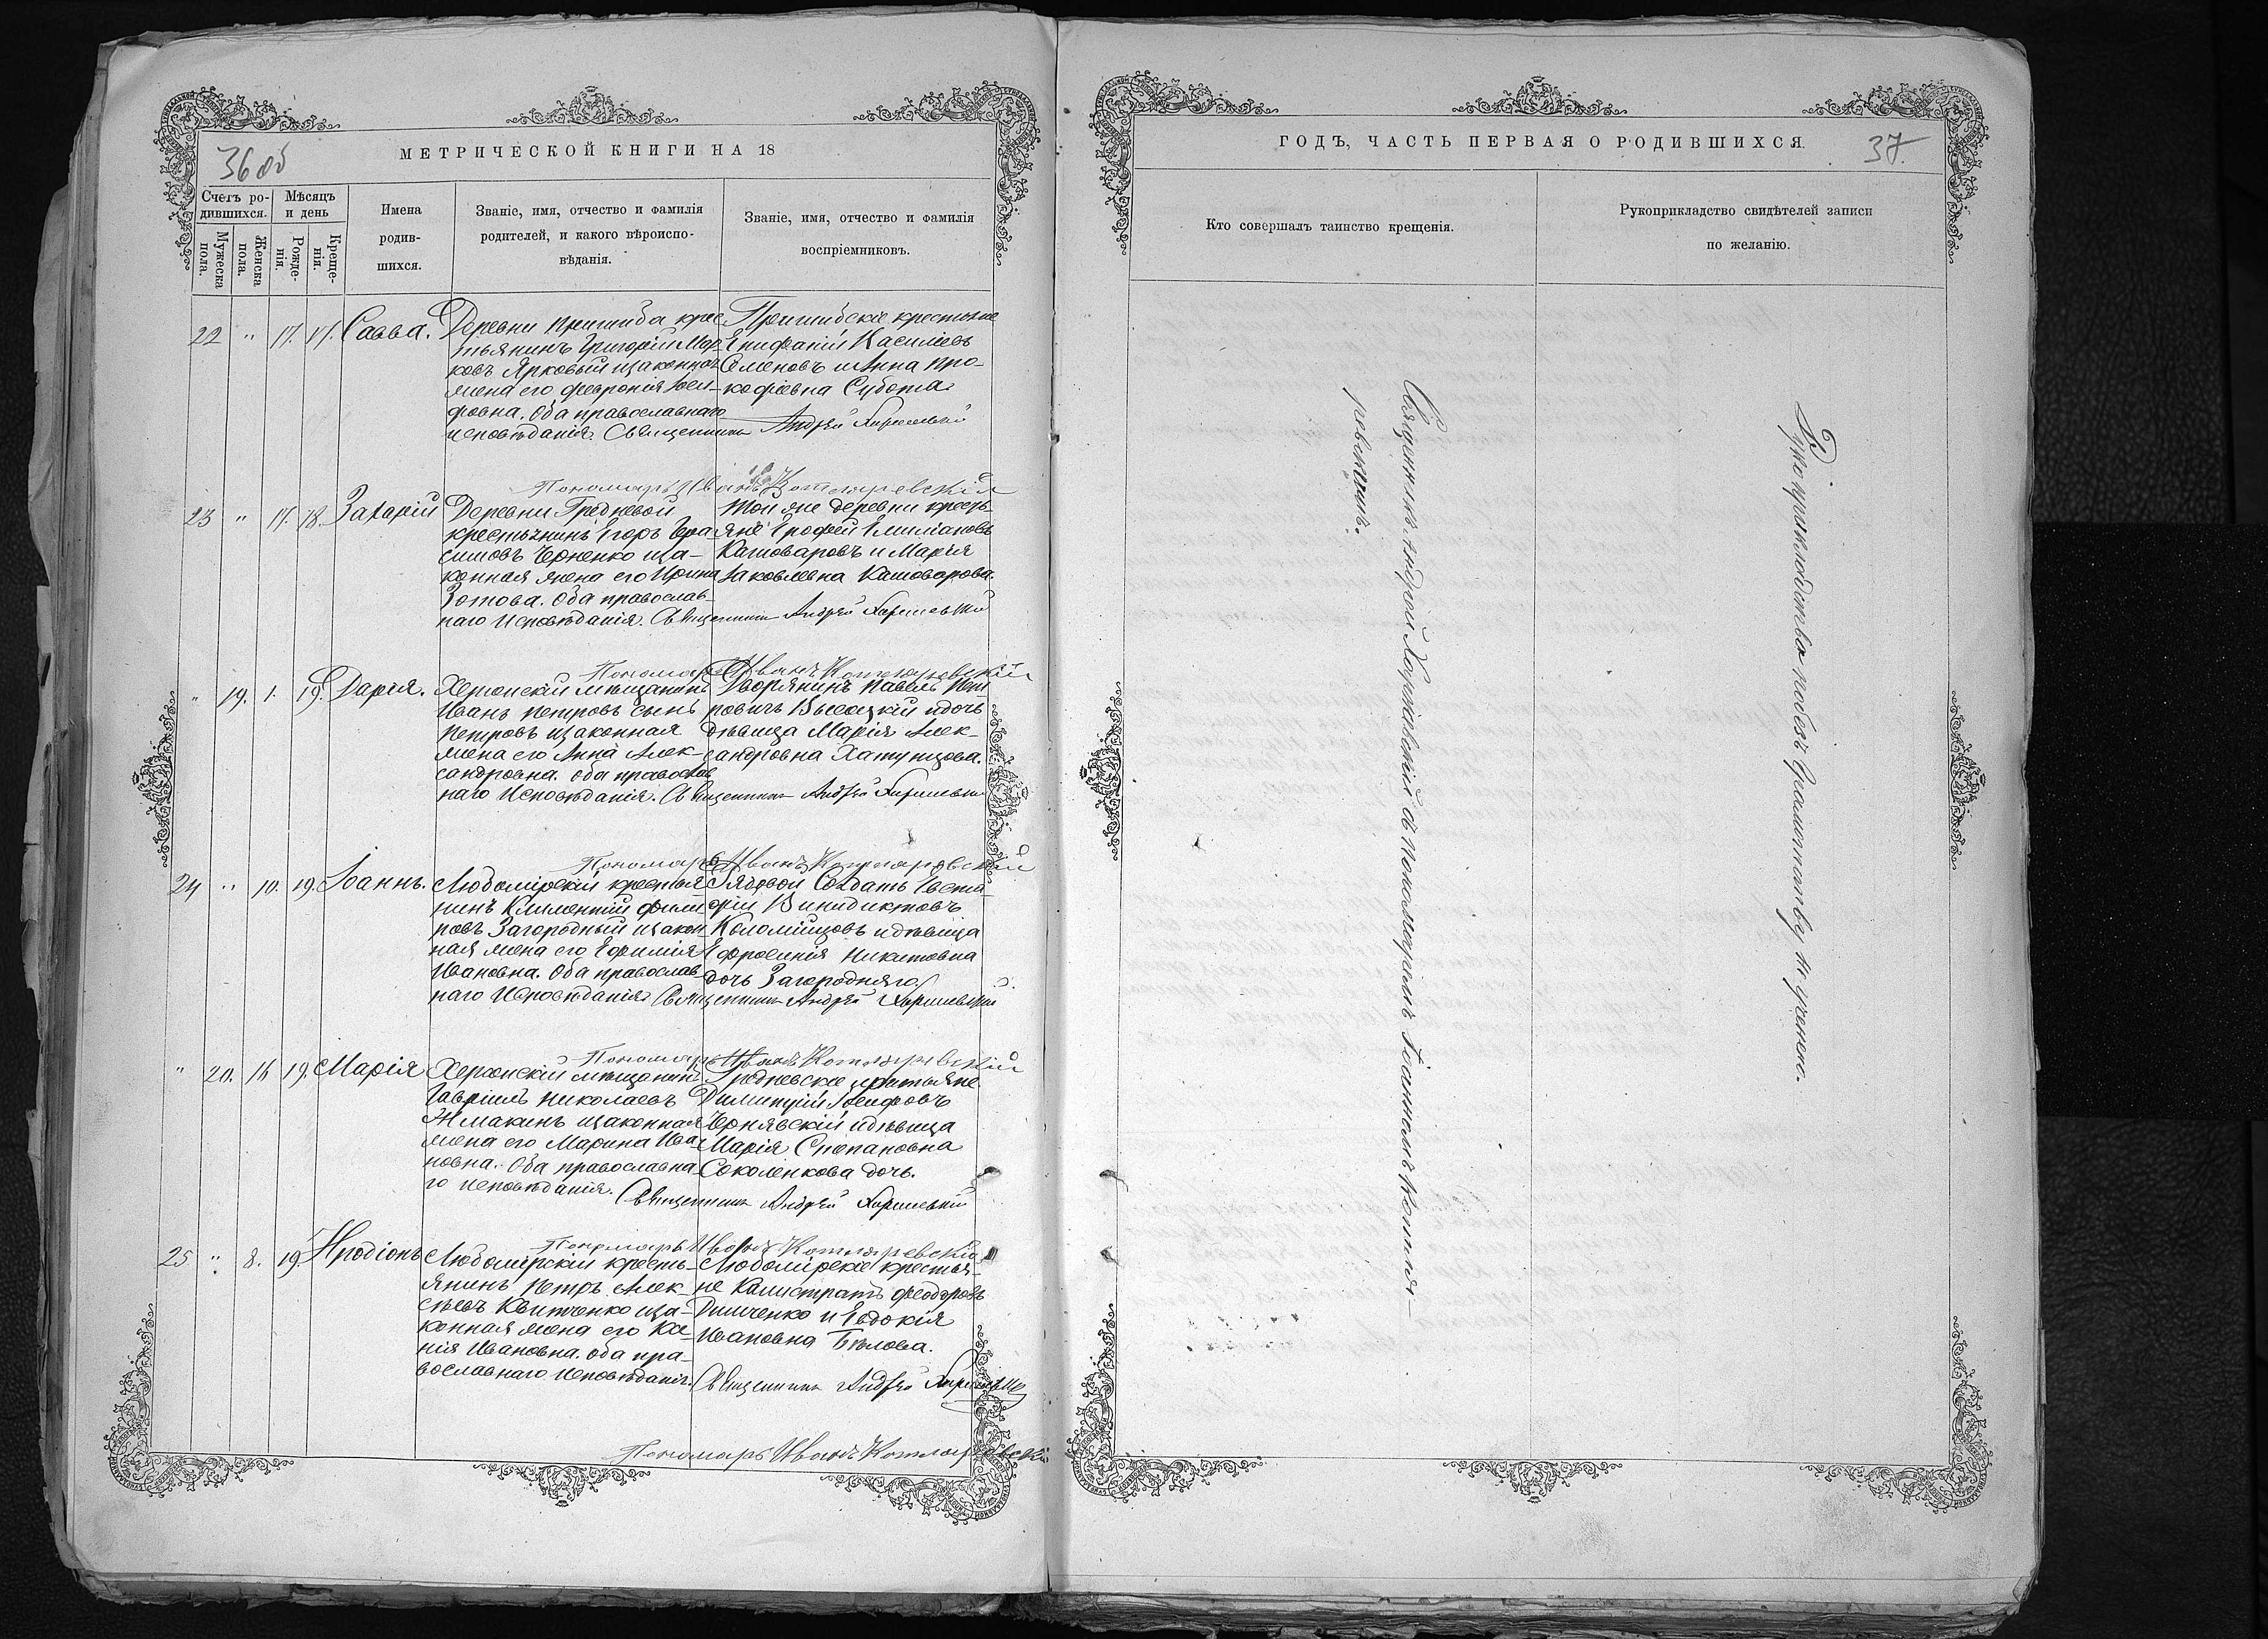 36 об
МЕТРИЧЕСКОЙ КНИГИ НА 18
Счетъ ро-
дившихся.
Мѣсяцъ
и день
Мужеска
пола.
Женска
пола.
Рожде-
нія.
Креще-
нія.
Имена
родив-
шихся.
Званіе, имя, отчество и фамилія
родителей, и какого вѣроиспо-
вѣданія.
Званіе, имя, отчество и фамилія
воспріемниковъ.
22 " 17. 17. Савва.
Деревни Пришиба крес
тьянинъ Григорій Мар
ковъ Ярковый изаконная
жена его Февронія Іоси
фовна. Оба православнаго
исповѣданія. Священникъ Андрей
Пришибскіе крестьяне
Епифаній Касиліевъ
Семеновъ и Анна Про-
кофіевна Субота
Пономарь Иванъ Котляревскій
23 " 17. 18. Захарій
Деревни Гредневой
крестьянинъ Егоръ Гера
симовъ Черненко иза-
конная жена его Ирина
Зотова. Оба православ-
наго исповѣданія. Священникъ Андрей
Той же деревни кресть-
яне Ерофей Емилиановъ
Кашоваровъ и Марѳа
Яковлевна Кашоварова.
Пономарь Иванъ Котляревскій
" 19. 1. 19. Дарія.
Херсонскій мѣщанинъ
Иванъ Петровъ сынъ
Петровъ изаконная
жена его Анна Алек-
сандровна. Оба православ
наго исповѣданія. Священникъ Андрей
Дворянинъ Павелъ Пет
ровичъ Высоцкій и дочь
дѣвица Марія Алек-
сандровна Хатунцова.
Пономарь Иванъ Котляревскій
24 " 10. 19. Іоаннъ.
Любомірскій крестья
нинъ Климентій
ровъ Загородный изакон
ная жена его Ефимія
Ивановна. Оба православ
наго исповѣданія Священникъ Андрей
Рядовой Солдатъ Евста
фій Винидиктовъ
Коломійцовъ и дѣвица
Ефросинія Никитовна
дочь Загородняго
Пономарь Иванъ Котляревскій
" 20. 16 19. Марія
Херсонскій мѣщанинъ
Гавріилъ Николаевъ
Жмакинъ изаконная
жена его Марина Ива
новна. Оба православна
го исповѣданія. Священникъ Андрей
Гредневскіе крестьяне
Димитрій Іосифовъ
Чернявскій и дѣвица
Марія Степановна
Соколенкова дочь.
Пономарь Иванъ Котляревскій
25 " 8. 19. Иродіонъ
Любомірскій кресть-
янинъ Петръ Алек-
сѣевъ Квитченко иза-
конная жена его Ксе
нія Ивановна. Оба пра-
вославнаго исповѣданія.
Любомірскіе крестья-
не Калистратъ Феодоровъ
Димченко и Евдокія
Ивановна Бѣлова.
Священникъ Андрей
Пономарь Иванъ Котляревскій
37.
ГОДЪ, ЧАСТЬ ПЕРВАЯ О РОДИВШИХСЯ.
Кто совершалъ таинство крещенія.
Рукоприкладство свидѣтелей записи
по желанію.
Священникъ Андрей съ пономаремъ Іоанномъ Котля-
ревскимъ.
Рукоприкладства не учинено.